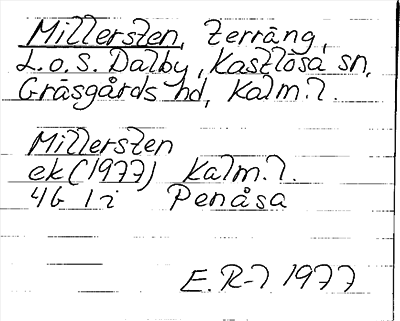 Millersten, Terräng,
L.o.S. Dalby, Kastlösa sn,
Gräsgårds hd, Kalm.l.
Millersten
ek (1977) Kalm.l.
4G 1i Penåsa
E.R-l 1977